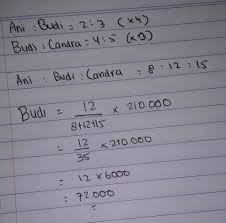 Ani : Budi = 2 : 3 (x4)
Budi : Candra = 4 : 5 (x3)
Ani : Budi : Candra = 8 : 12 : 15
Budi = 12 / 8+12+15 x 210.000
= 12 / 35 x 210.000
= 12 x 6000
= 72.000